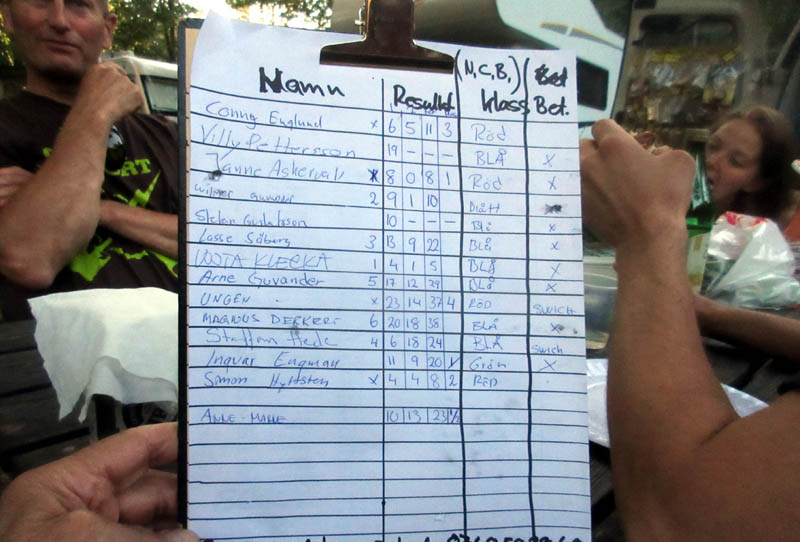 Namn Resultat (N,C,B,) klass Bet.
Conny Englund x 6 5 11 3 Röd
Villy Pettersson 19 - - - BLÅ x
Janne Askervall x 8 0 8 1 Röd x
2 9 1 10
Stefan Gustafsson 10 - - - Blå x
Lasse Säberg 3 13 9 22 Blå x
VOJTA KLECKA 1 4 1 5 BLÅ x
Arne Guvander 5 17 12 29 Blå x
UNGEN x 23 14 37 4 RÖD SWICH
MAGNUS 6 20 18 38 Blå x
Staffan Hede 4 6 18 24 BLÅ Swich
Ingvar Engman 11 9 20 Grön x
Simon x 4 4 8 2 RÖD
ANNE-MARIE 10 13 23